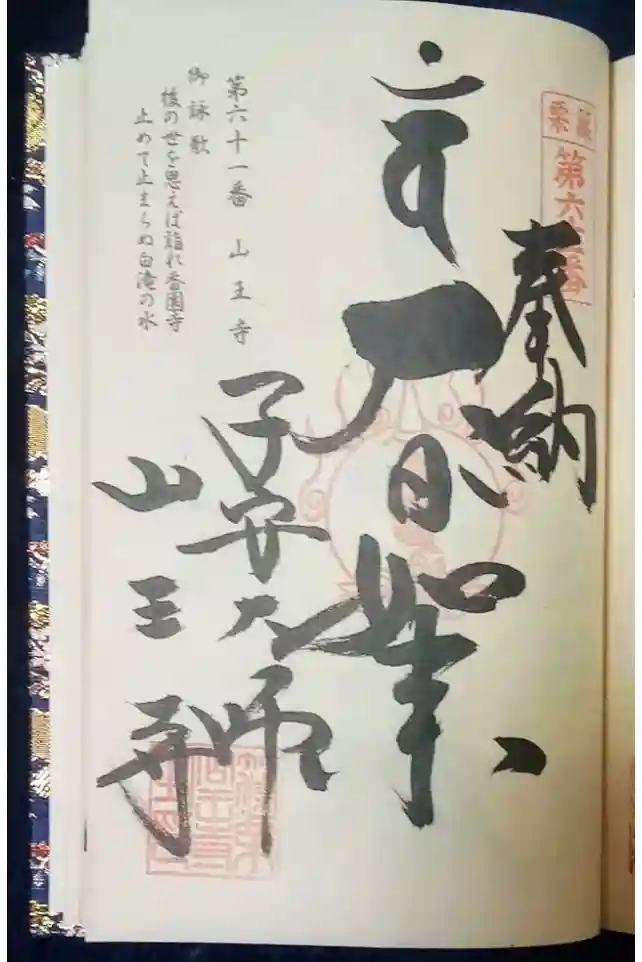 篠栗
第六十一番
奉納
大日如来
子安大師
山王寺
第六十一番 山王寺
御詠歌
後の世を思えば詣れ香園寺
止めて止まらぬ白滝の水